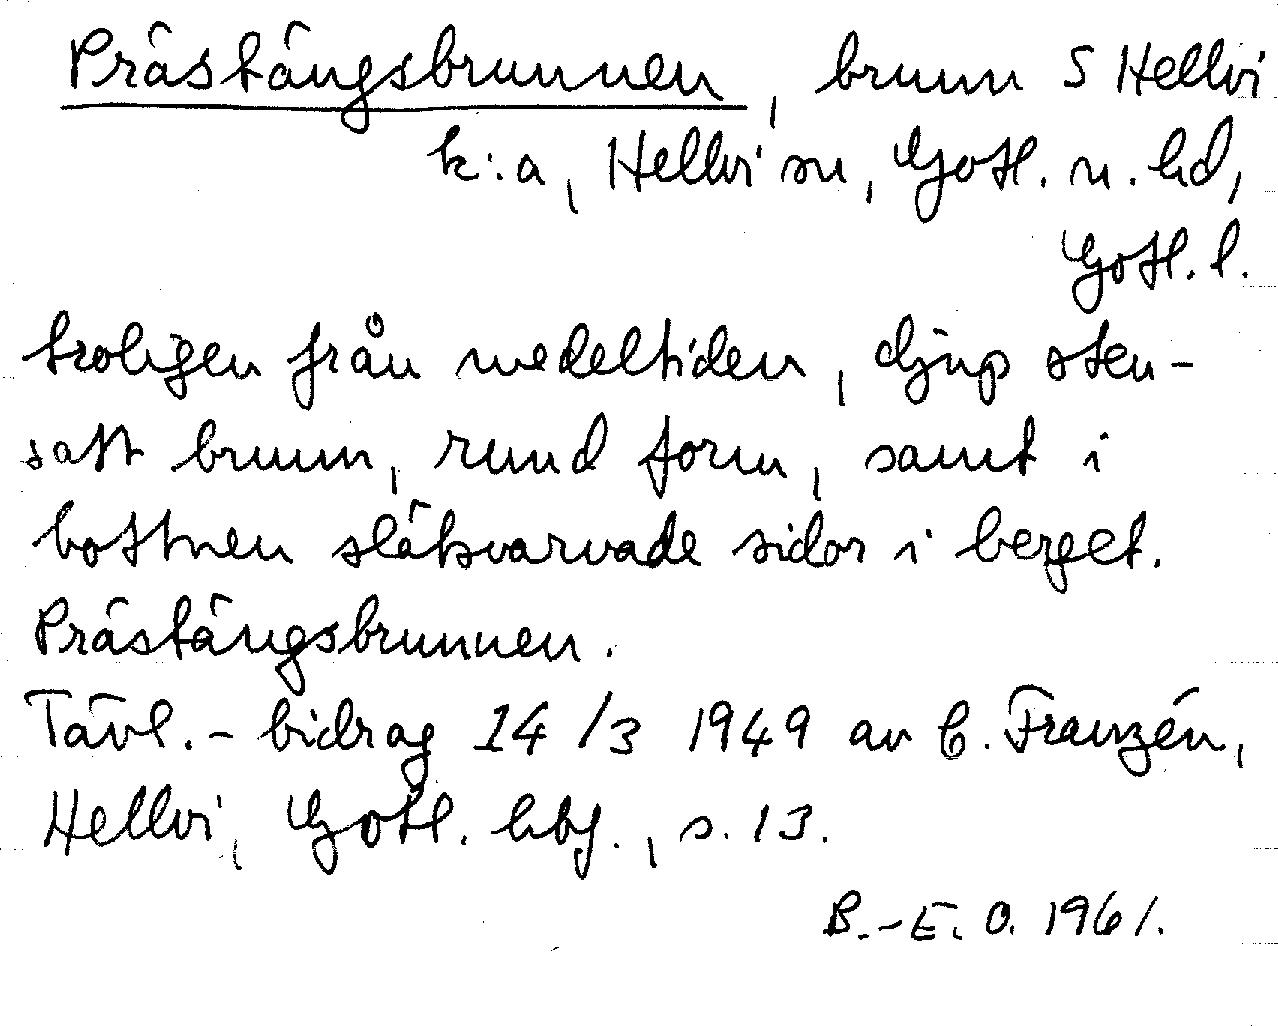 Prästängsbrunnen, brunn S Hellvi
k:a, Hellvi sn, Gotl. n. hd,
Gotl. l.
troligen från medeltiden, djup sten-
satt brunn, rund form, samt i
bottnen slätsvarvade sidor i berget.
Prästängsbrunnen.
Tävl.- bidrag 14/3 1949 av C. Franzén,
Hellvi, Gotl. hbf., s. 13.
B.-E. O. 1961.